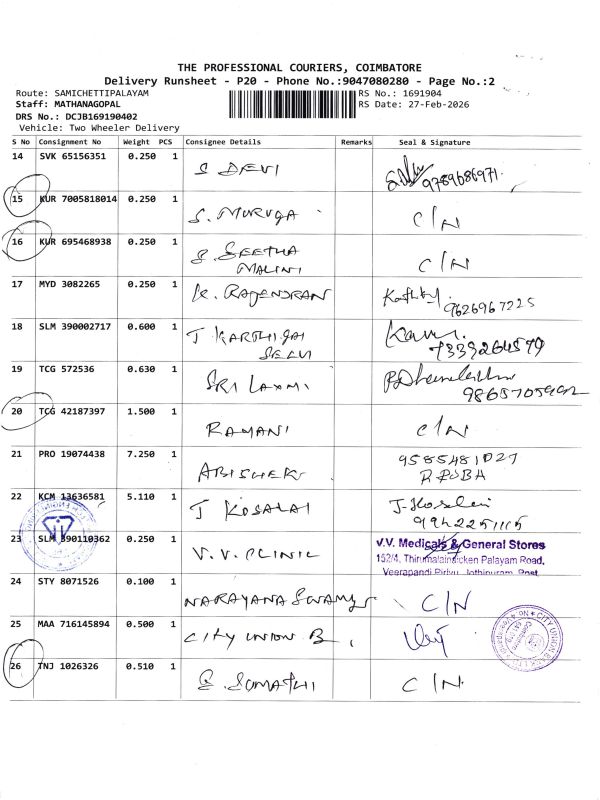 THE PROFESSIONAL COURIERS, COIMBATORE
Delivery Runsheet - P20 - Phone No.:9047080280 - Page No.:2
Route: SAMICHETTIPALAYAM
RS No.: 1691904
Staff: MATHANAGOPAL
RS Date: 27-Feb-2026
DRS No.: DCJB169190402
Vehicle: Two Wheeler Delivery
S No Consignment No Weight PCS Consignee Details Remarks Seal & Signature
14 SVK 65156351 0.250 1 S DEVI 9789686971
15 KUR 7005818014 0.250 1 S. MURUGA C/N
16 KUR 695468938 0.250 1 S SEETHA C/N
MALINI
17 MYD 3082265 0.250 1 K. RAJENDRAN 9626967225
18 SLM 390002717 0.600 1 T KARTHIGAI Kavi.
SELVI 7339264579
19 TCG 572536 0.630 1 SRI LAXMI
20 TCG 42187397 1.500 1 RAMANI C/N
21 PRO 19074438 7.250 1 ABISHEK 9585481027
R.RUBA
22 KCM 13636581 5.110 1 T KOSALAI
23 SLM 390110362 0.250 1 V.V. CLINIC V.V. Medicals & General Stores
152/4, Thirumalainaicken Palayam Road,
Veerapandi Pirivu, Jothipuram Post,
24 STY 8071526 0.100 1 NARAYANA SWAMY C/N
25 MAA 716145894 0.500 1 CITY UNION B,
CITY UNION BANK LTD
26 TNJ 1026326 0.510 1 S. SUMATHI C/N